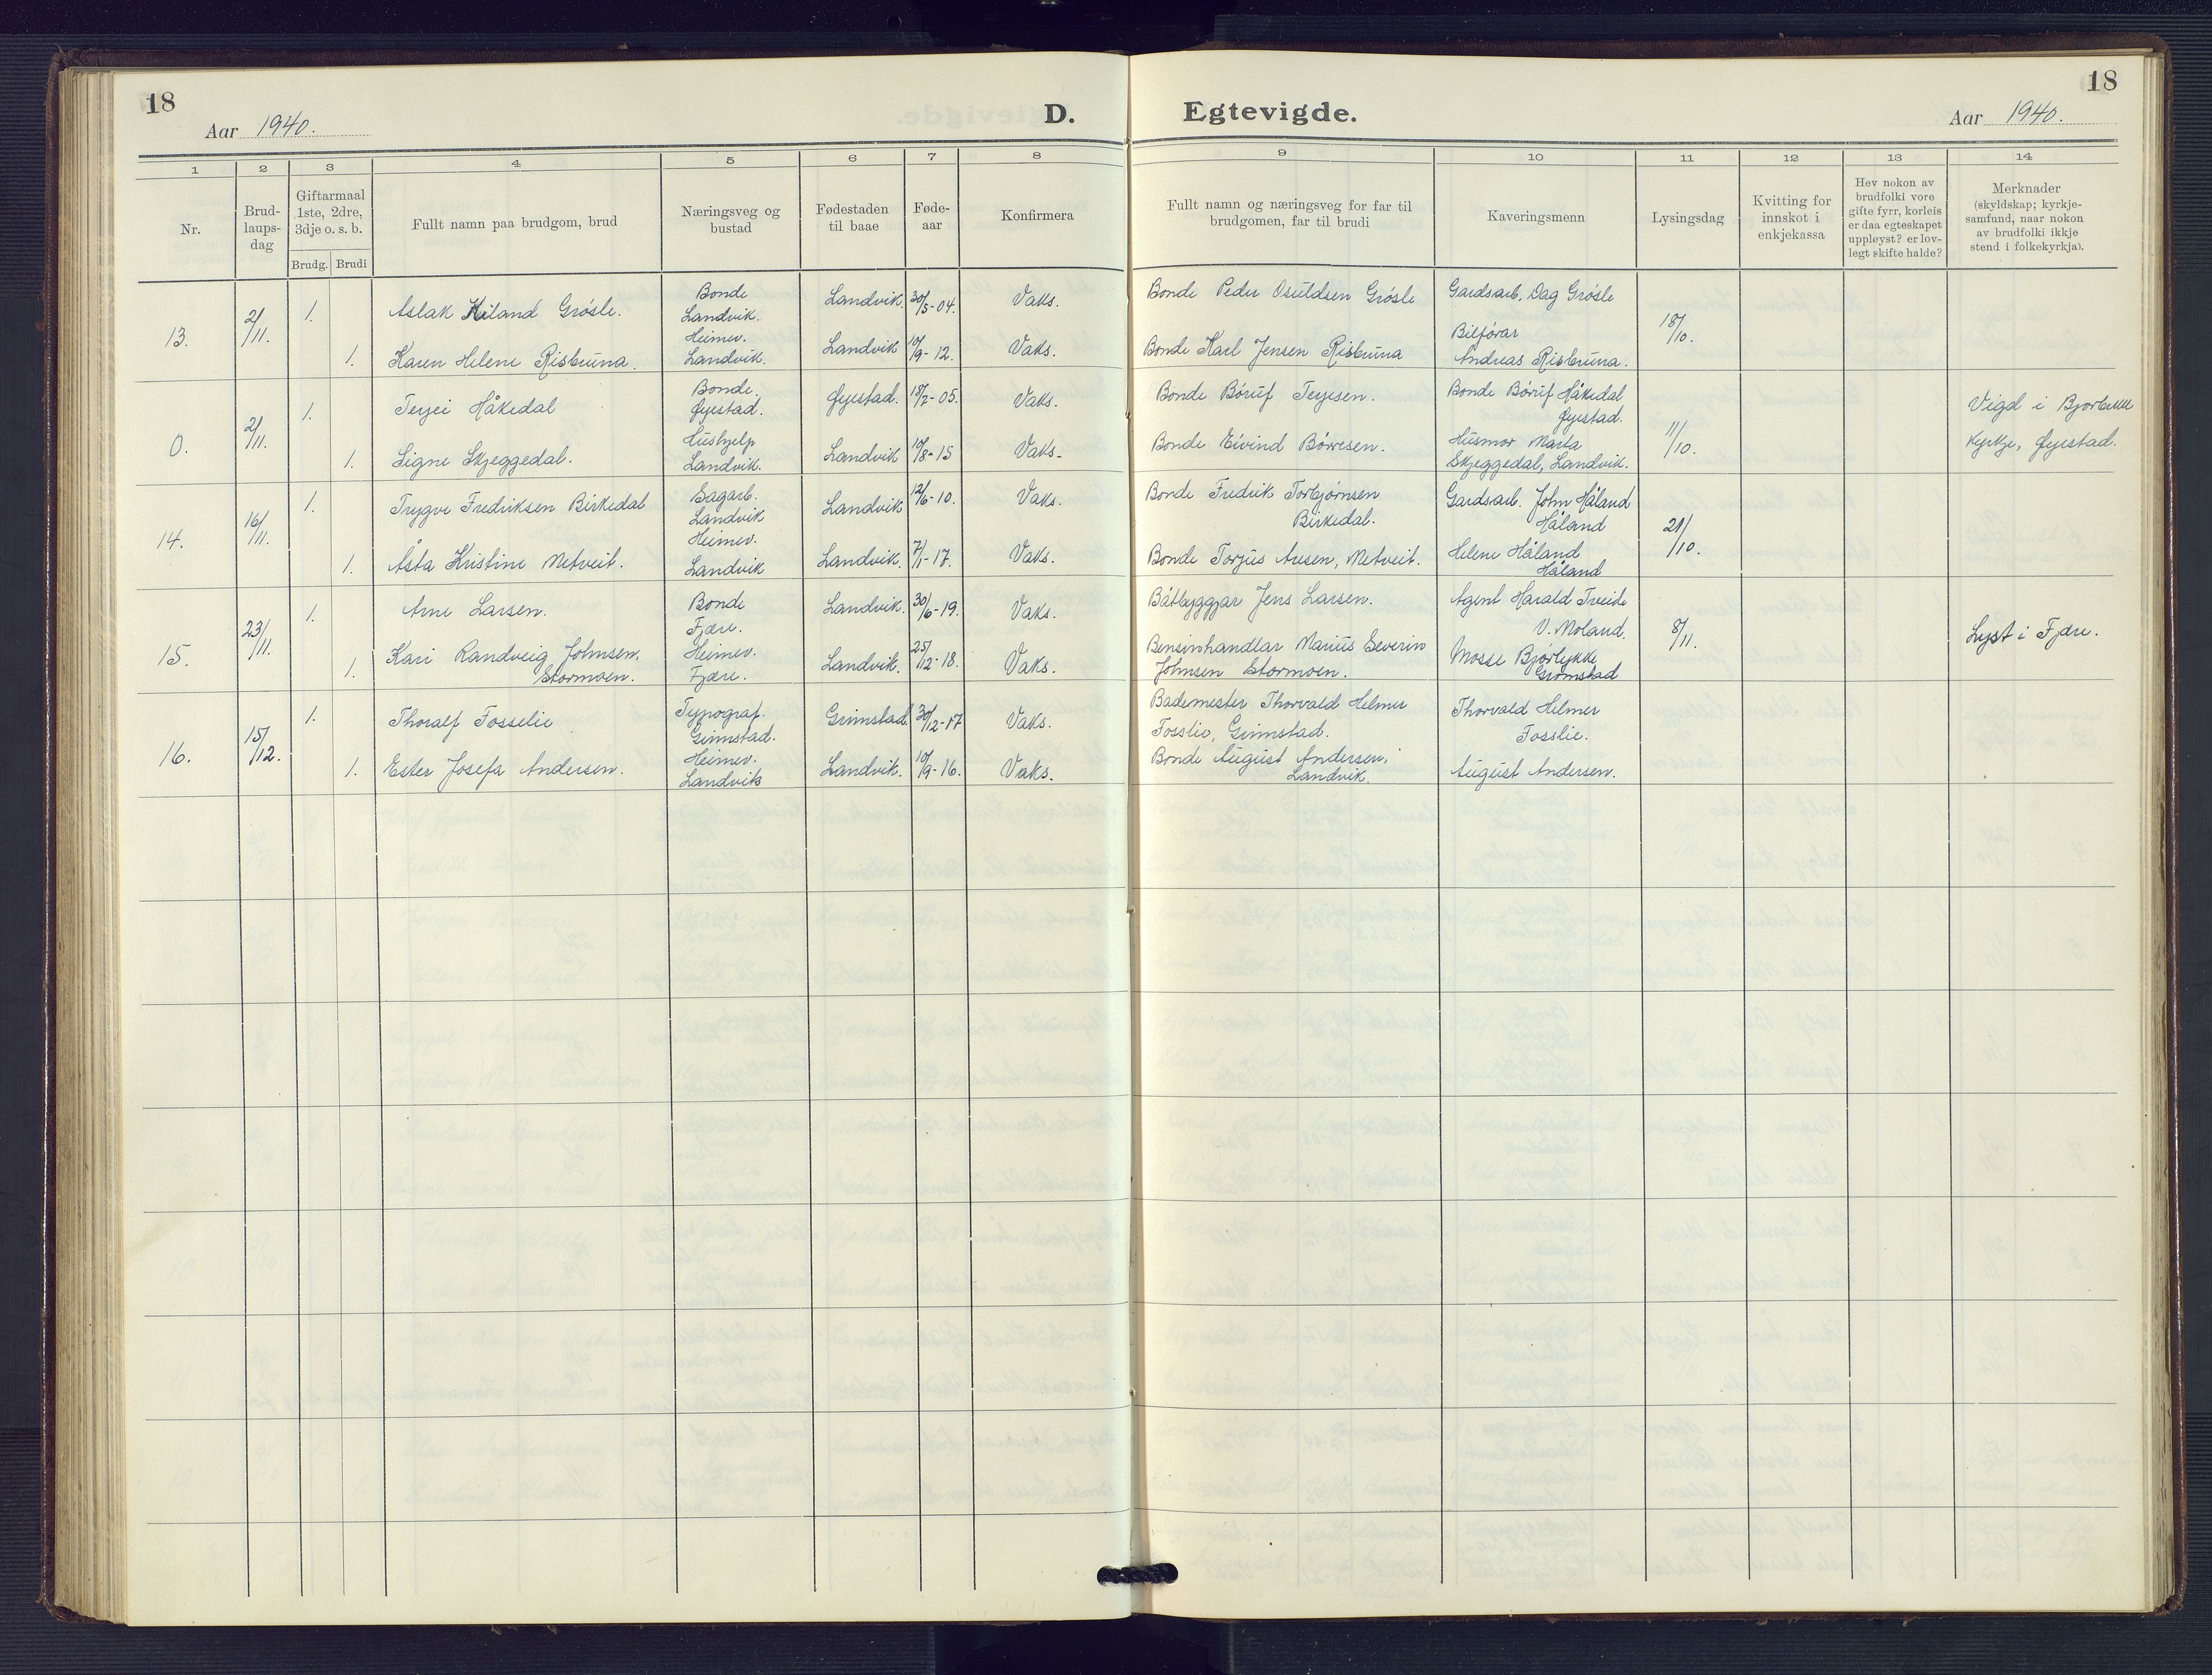 18
Aar 1940.
D.
Egtevigde.
18
Aar 1940.
1 2 3 4 5 6 7 8 9 10 11 12 13 14
Nr.
Brud-
laups-
dag
Giftarmaal
1ste, 2dre,
3dje o. s. b.
Brudg. Brudi
Fullt namn paa brudgom, brud
Næringsveg og
bustad
Fødestaden
til baae
Føde-
aar
Konfirmera
Fullt namn og næringsveg for far til
brudgomen, far til brudi
Kaveringsmenn
Lysingsdag
Kvitting for
innskot i
enkjekassa
Hev nokon av
brudfolki vore
gifte fyrr, korleis
er daa egteskapet
uppløyst? er lov-
legt skifte halde?
Merknader
(skyldskap; kyrkje-
samfund, naar nokon
av brudfolki ikkje
stend i folkekyrkja).
13.
2/11.
1. Aslak Kiland Grøsle.
Bonde
Landvik.
Landvik. 30/5-04. Vaks.
Bonde Peder Osuldsen Grøsle
Gardsarb. Dag Grøsle
18/10.
1. Karen Helene Risbruna.
Heimev.
Landvik.
Landvik 10/9-12. Vaks.
Bonde Karl Jensen Risbruna
Bilførar
Andreas Risbruna.
0.
2/11.
1. Terjei Håkedal
Bonde.
Øyestad.
Øyestad. 18/7-05. Vaks.
Bonde Børuf Terjesen.
Bonde Børuf Håkedal
Øyestad.
11/10.
Vigd i Bjorbekk
kyrkje, Øyestad.
1. Signe Skjeggedal.
Hushjelp
Landvik.
Landvik 10/8-15 Vaks.
Bonde Eivind Børresen.
Husmor Marta
Skjeggedal, Landvik.
14.
16/11.
1. Trygve Fredriksen Birkedal
Sagarb.
Landvik
Landvik 12/6-10. Vaks.
Bonde Fredrik Torbjørnsen
Birkedal.
Gardsarb. John Håland
Håland
21/10.
1. Åsta Kristine Metveit.
Heimev.
Landvik
Landvik. 7/1-17. Vaks.
Bonde Torjus Aresen, Metveit.
Helene Håland
Håland
15.
23/11.
1. Arne Larsen.
Bonde
Fjære.
Landvik. 30/6-19. Vaks.
Båtbyggjar Jens Larsen.
Agent Harald Treide
V. Moland.
8/11.
Lyst i Fjære.
1. Kari Randveig Johnsen,
Stormoen.
Heimev.
Fjære.
Landvik. 25/12-18. Vaks.
Bensinhandlar Marius Severin
Johnsen Stormoen.
Mosse Bjørlykke
Grimstad
16.
15/12.
1. Thoralf Fosselie
Typograf.
Grimstad.
Grimstad. 30/12-17 Vaks.
Bademester Thorvald Helmer
Fosslie, Grimstad.
Thorvald Helmer
Fosslie.
1. Ester Josefa Andersen.
Heimev.
Landvik
Landvik. 10/9-16. Vaks.
Bonde August Andersen,
Landvik.
August Andersen.